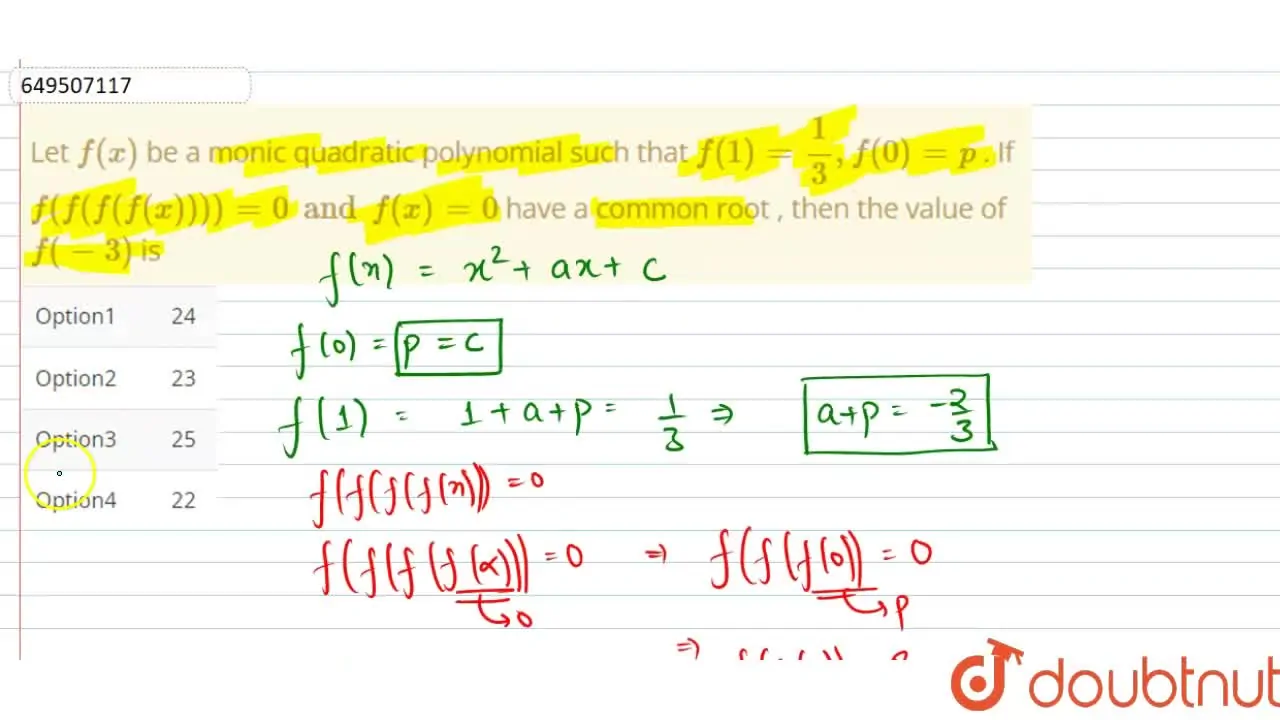 649507117
Let f(x) be a monic quadratic polynomial such that f(1) = 1/3, f(0) = p . If
f(f(f(f(x)))) = 0 and f(x) = 0 have a common root , then the value of
f( − 3) is
f(x) = x² + ax + c
Option1 24
f(0) = p = c
Option2 23
f(1) = 1 + a + p = 1/3 ⇒ a+p = -2/3
Option3 25
f(f(f(f(x)) = 0
Option4 22
f(f(f(f(α))) = 0 ⇒ f(f(f(0)) = 0
→0 →p
⇒
doubtnut